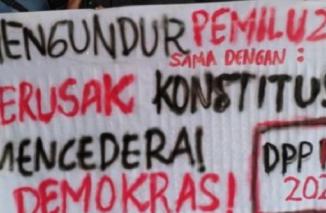 MENGUNDUR PEMILU2
SAMA DENGAN :
ERUSAK KONSTITUS
MENCEDERAI
DEMOKRASI
DPP
202